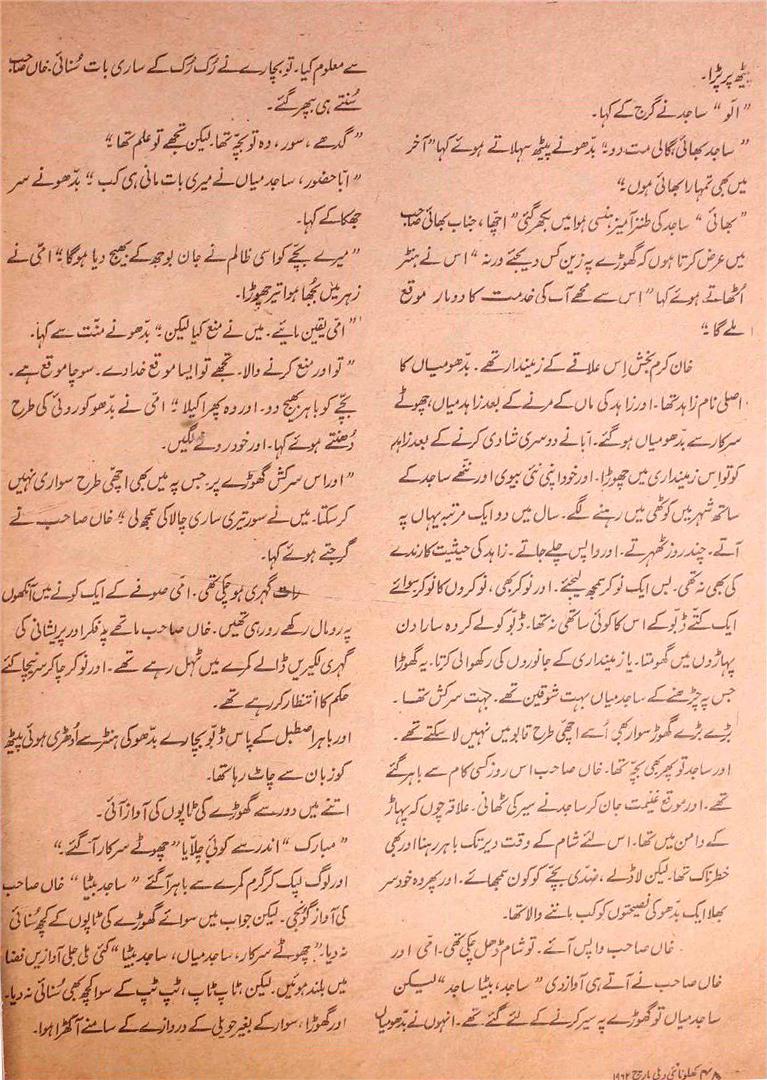 پیٹھ پر پڑا۔
”اُلّو“ ساجد نے گرج کے کہا۔
”ساجد بھائی! گالی مت دو۔“ بدھو نے پیٹھ سہلاتے ہوئے کہا ”آخر
میں بھی تمہارا بھائی ہوں۔“
”بھائی“ ساجد کی طنز آمیز ہنسی ہوا میں بکھر گئی ”اچھا، جناب بھائی صاحب
میں عرض کرتا ہوں کہ گھوڑے پہ زین کس دیجئے ورنہ“ اس نے ہنٹر
اُٹھاتے ہوئے کہا ”اس سے مجھے آپ کی خدمت کا دوبارہ موقع
ملے گا۔“
خان کرم بخش اس علاقے کے زمیندار تھے۔ بدھو میاں کا
اصلی نام زاہد تھا۔ اور زاہد کی ماں کے مرنے کے بعد زاہد میاں چھوٹے
سرکار سے بدھو میاں ہو گئے۔ ابا نے دوسری شادی کرنے کے بعد زاہد
کو تو اس زمینداری میں چھوڑا۔ اور خود اپنی نئی بیوی اور ننھے ساجد کے
ساتھ شہر میں کوٹھی میں رہنے لگے۔ سال میں دو ایک مرتبہ یہاں پہ
آتے۔ چند روز ٹھہرتے۔ اور واپس چلے جاتے۔ زاہد کی حیثیت کارندے
کی بھی نہ تھی۔ بس ایک نوکر سمجھ لیجئے۔ اور نوکر بھی، نوکروں کا نوکر سوائے
ایک کتّے ڈبّو کے اس کا کوئی ساتھی نہ تھا۔ ڈبّو کو لے کر وہ سارا دن
پہاڑوں میں گھومتا۔ یا زمینداری کے جانوروں کی رکھوالی کرتا۔ یہ گھوڑا
جس پہ چڑھنے کے ساجد میاں بہت شوقین تھے۔ بہت سرکش تھا۔
بڑے بڑے گھوڑ سوار بھی اُسے اچھی طرح قابو میں نہیں لا سکتے تھے۔
اور ساجد تو پھر بھی بچّہ تھا۔ خاں صاحب اس روز کسی کام سے باہر گئے
تھے۔ اور موقع غنیمت جان کر ساجد نے سیر کی ٹھانی۔ علاقہ چوں کہ پہاڑ
کے دامن میں تھا۔ اس لئے شام کے وقت دیر تک باہر رہنا اور بھی
خطرناک تھا۔ لیکن لاڈلے، ضدّی بچّے کو کون سمجھائے۔ اور پھر وہ خود سر
بھلا ایک بدھو کی نصیحتوں کو کب ماننے والا تھا۔
خاں صاحب واپس آئے۔ تو شام ڈھل چکی تھی۔ امّی اور
خاں صاحب نے آتے ہی آواز دی ”ساجد، بیٹا ساجد“ لیکن
ساجد میاں تو گھوڑے پہ سیر کرنے کے لئے گئے تھے۔ انہوں نے بدھو میاں
سے معلوم کیا۔ تو بچارے نے رُک رُک کے ساری بات سُنائی۔ خاں صاحب
سُنتے ہی بپھر گئے۔
”گدھے، سور، وہ تو بچّہ تھا۔ لیکن تجھے تو علم تھا۔“
”ابّا حضور، ساجد میاں نے میری بات مانی ہی کب۔“ بدّھو نے سر
جھکا کے کہا۔
”میرے بچّے کو اسی ظالم نے جان بوجھ کے بھیج دیا ہوگا۔“ امّی نے
زہر میں بُجھا ہوا تیر چھوڑا۔
”امّی یقین مانیے۔ میں نے منع کیا لیکن۔“ بدّھو نے منّت سے کہا۔
”تو اور منع کرنے والا۔ تجھے تو ایسا موقع خدا دے۔ سوچا موقع ہے۔
بچّے کو باہر بھیج دو۔ اور وہ پھر اکیلا۔“ امّی نے بدّھو کو روئی کی طرح
دُھنتے ہوئے کہا۔ اور خود رونے لگیں۔
”اور اس سرکش گھوڑے پر۔ جس پہ میں بھی اچھّی طرح سواری نہیں
کر سکتا۔ میں نے سور تیری ساری چالاکی سمجھ لی۔“ خاں صاحب نے
گرجتے ہوئے کہا۔
رات گہری ہو چکی تھی۔ امّی صوفے کے ایک کونے میں آنکھوں
پہ رومال رکھے رو رہی تھیں۔ خاں صاحب ماتھے پہ فکر اور پریشانی کی
گہری لکیریں ڈالے کمرے میں ٹہل رہے تھے۔ اور نوکر چاکر سر نیچا کئے
حکم کا انتظار کر رہے تھے۔
اور باہر اصطبل کے پاس ڈبّو بچارے بدّھو کی ہنٹر سے اُدھڑی ہوئی پیٹھ
کو زبان سے چاٹ رہا تھا۔
اتنے میں دور سے گھوڑے کی ٹاپوں کی آواز آئی۔
”مبارک“ اندر سے کوئی چلّایا ”چھوٹے سرکار آ گئے۔“
اور لوگ لپک کر گرم کمرے سے باہر آ گئے ”ساجد بیٹا“ خاں صاحب
کی آواز گونجی۔ لیکن جواب میں سوائے گھوڑے کی ٹاپوں کے کچھ سُنائی
نہ دیا۔ ”چھوٹے سرکار، ساجد میاں، ساجد بیٹا“ کئی ملی جلی آوازیں فضا
میں بلند ہوئیں۔ لیکن، ٹاپ ٹاپ، ٹپ ٹپ کے سوا کچھ بھی سُنائی نہ دیا۔
اور گھوڑا، سوار کے بغیر حویلی کے دروازے کے سامنے آ کھڑا ہوا۔
کھلونا نئی دہلی مارچ ۱۹۶۲